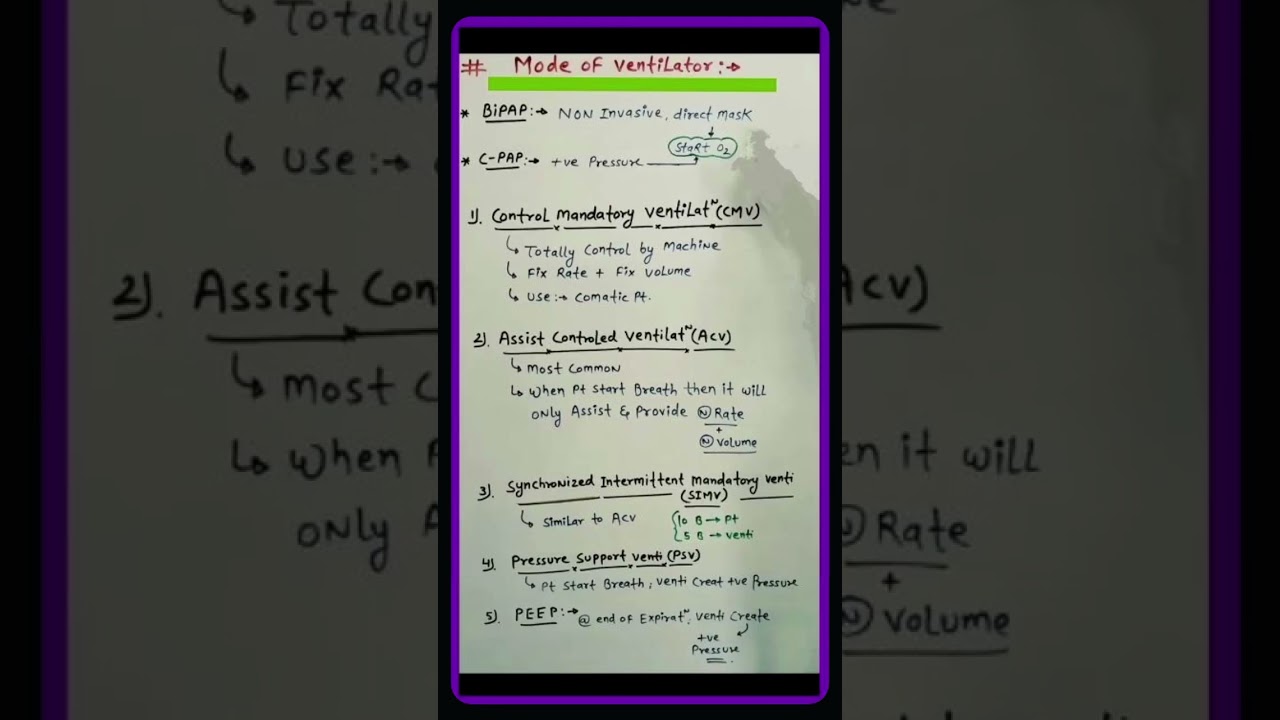 # Mode of Ventilator:→
* BiPAP:→ NON Invasive, direct mask
Start O2
* C-PAP:→ +ve Pressure
1). Control Mandatory Ventilat~(CMV)
Totally Control by Machine
Fix Rate + Fix Volume
Use:→ Comatic Pt.
2). Assist Controled Ventilat~(ACV)
Most Common
When Pt Start Breath then it will
only Assist & Provide (N) Rate
+
(N) Volume
3). Synchronized Intermittent Mandatory Venti
(SIMV)
Similar to ACV
10 B → Pt
5 B → Venti
4). Pressure Support Venti (PSV)
Pt Start Breath, Venti Creat +ve Pressure
5). PEEP:→ @ end of Expirat~, Venti Create
+ve
Pressure